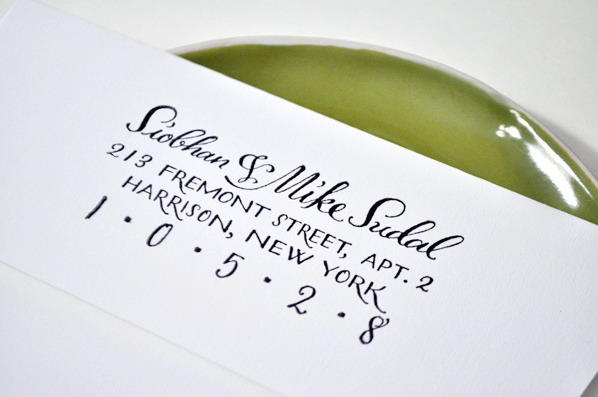 Siobhan & Mike Sudal
213 FREMONT STREET, APT. 2
HARRISON, NEW YORK
1 · 0 · 5 · 2 · 8